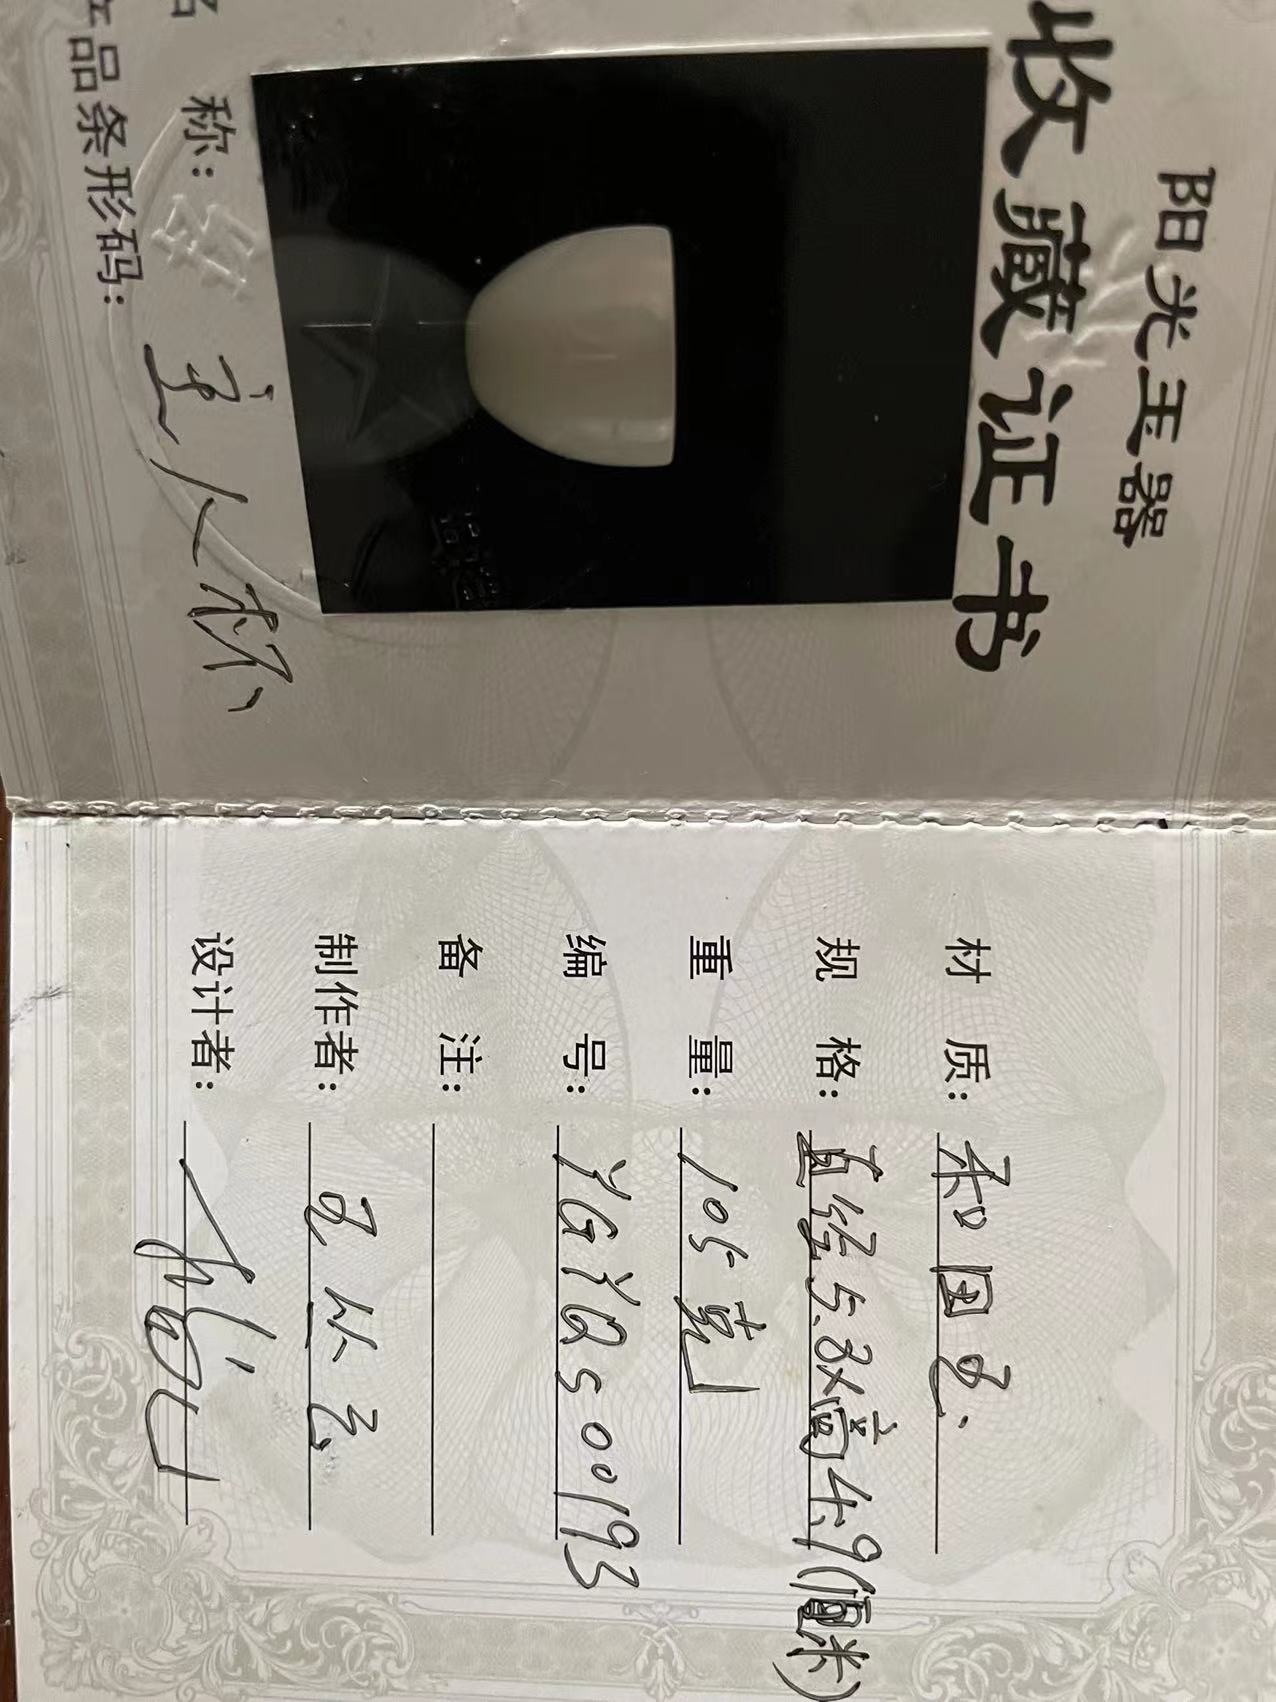 阳光玉器
收藏证书
名 称: 主人杯
产品条形码:
材 质: 和田玉
规 格: 直径5.8×高4.9(厘米)
重 量: 105克
编 号: YGYQS00193
备 注:
制作者:
设计者: